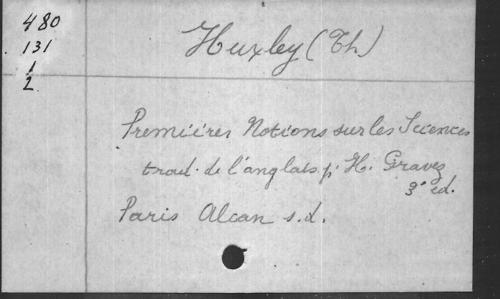 480
131
1
2
Huxley (Th)
Premières Notions sur les Sciences
trad. de l'anglais p. H. Gravez
3e ed.
Paris Alcan s.d.